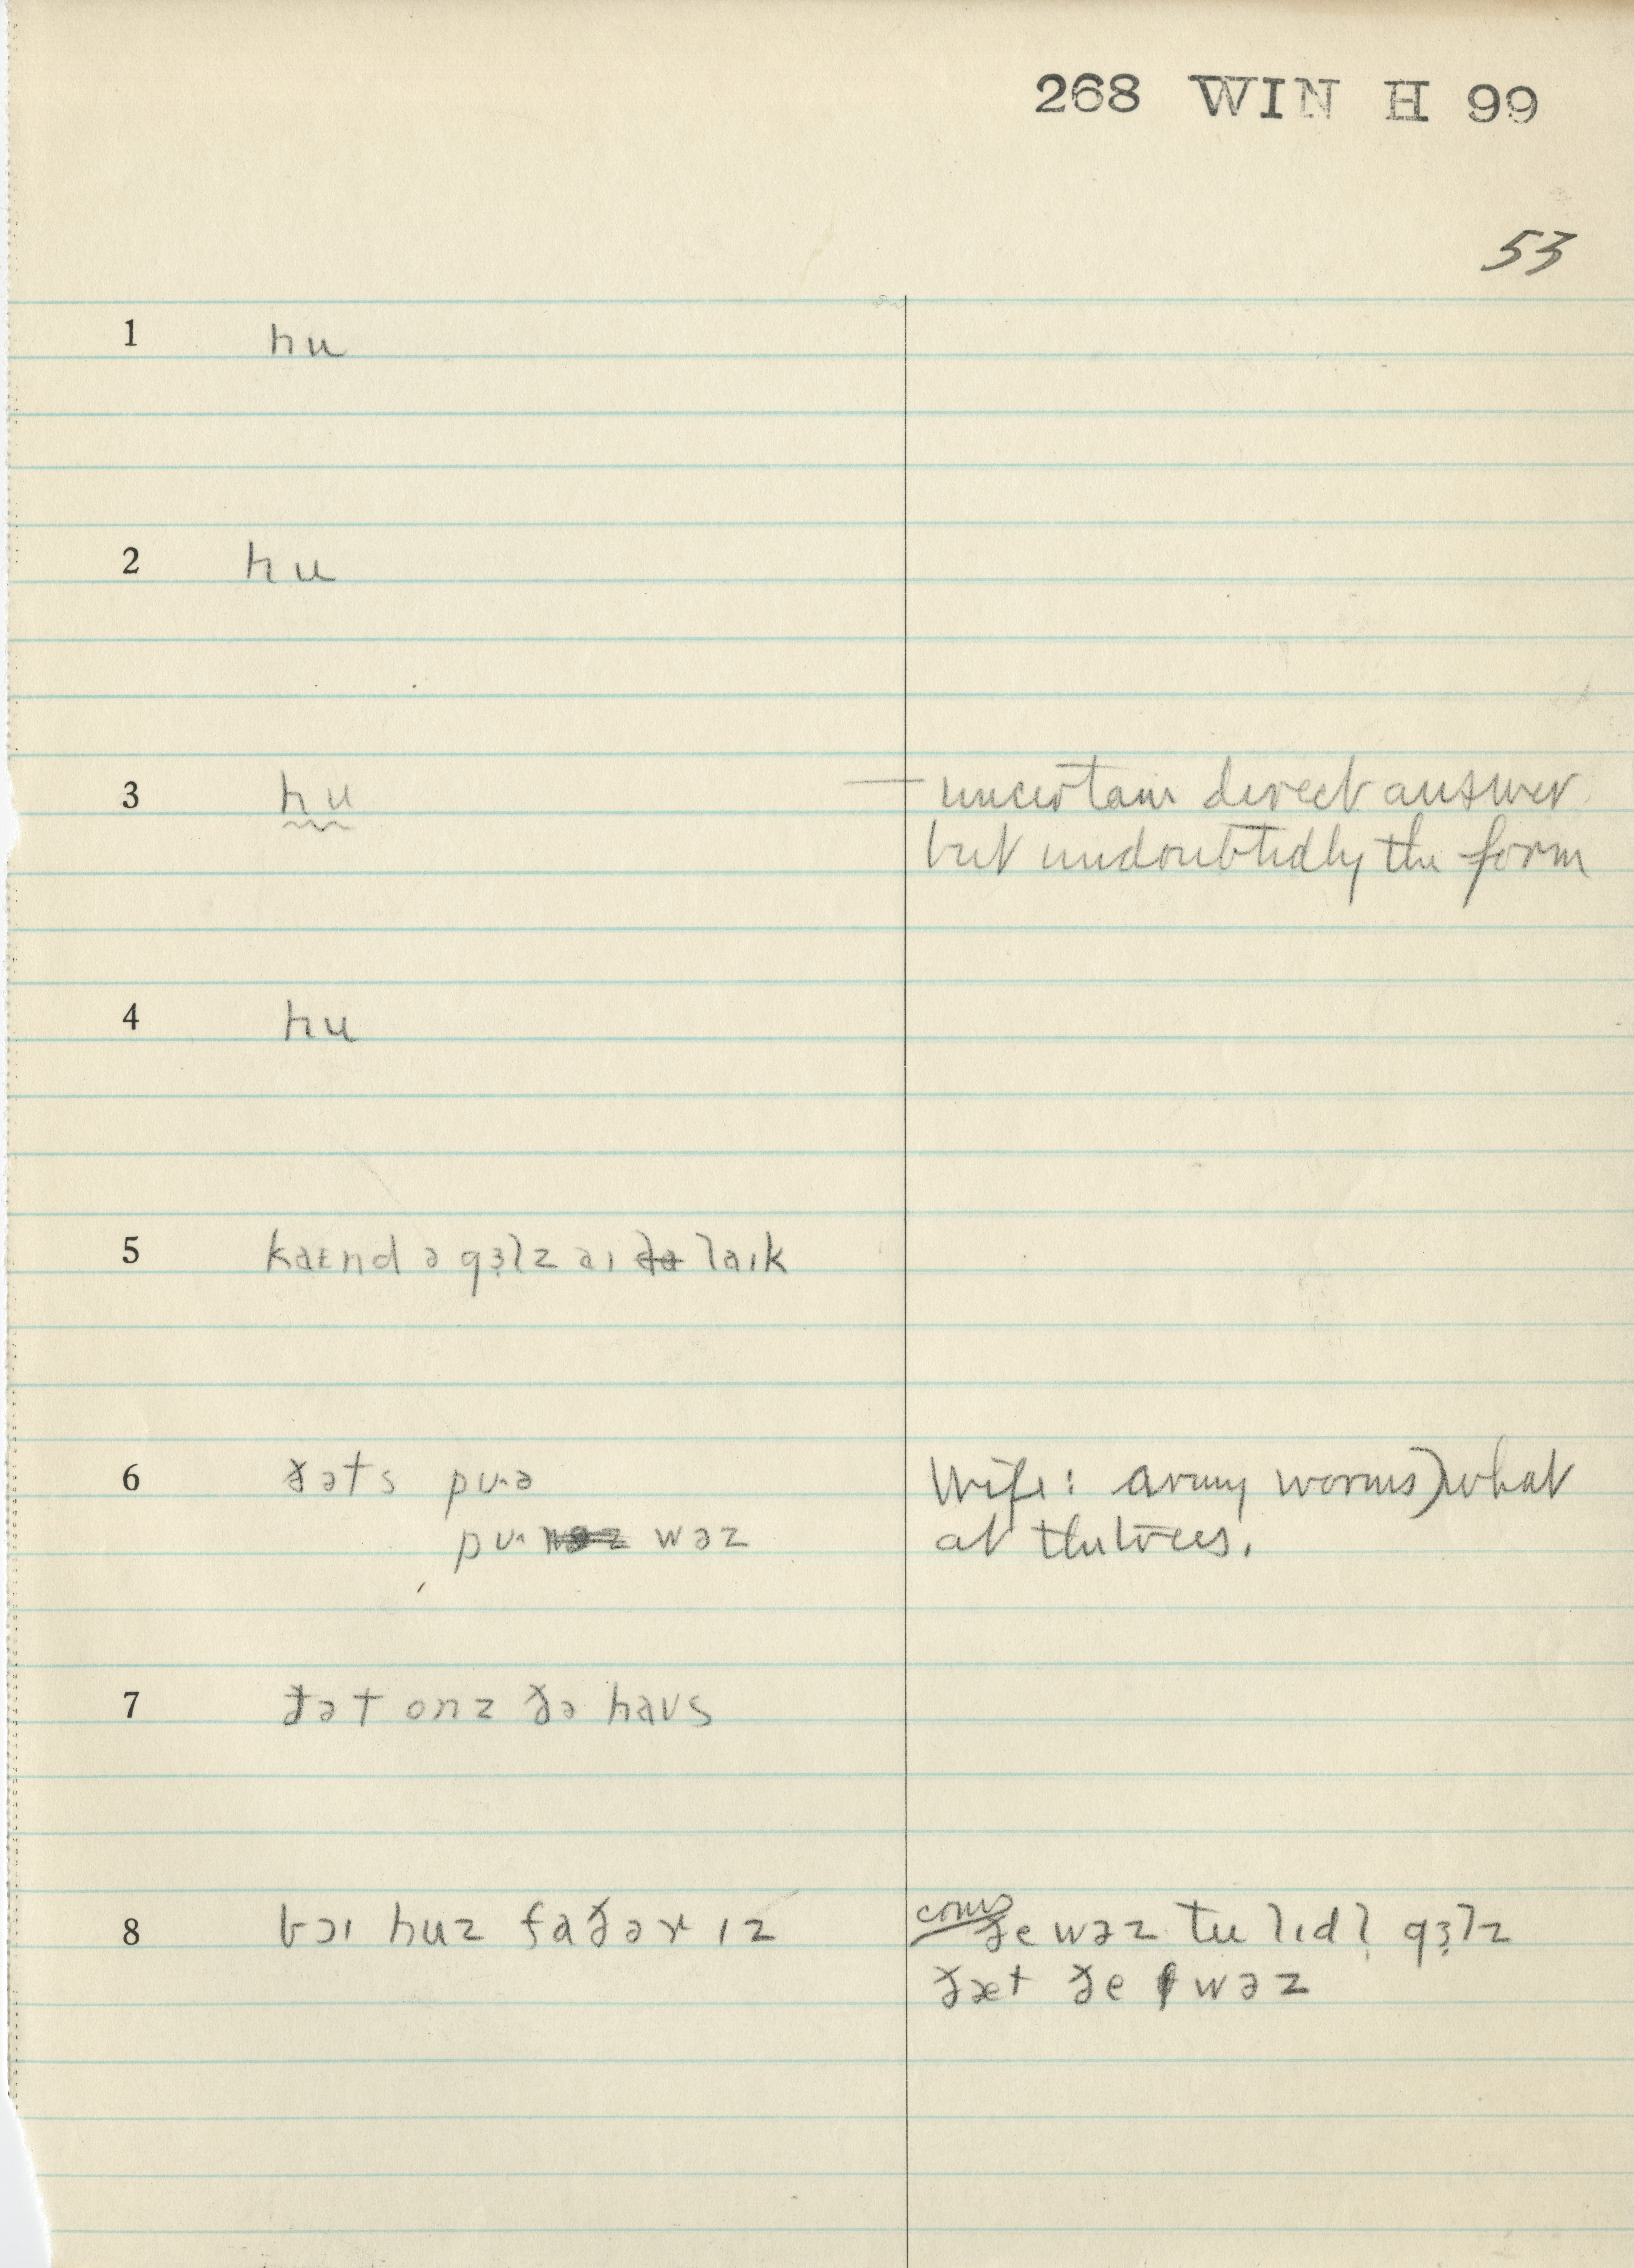 268 WIN H 99
53
1 hu
2 hu
3 hu — uncertain direct answer
but undoubtedly the form
4 hu
5 kaɛnd ə gɜ̣lz aɪ laɪk
6 ðəts pʊ·ə Wife: army worms) what
pʊ· wəz at the trees.
7 ðət onz ðə haʊs
8 bɔɪ huz faðər ɪz conv ðe wəz tu lɪdl̩ gɜ̣lz
ðæt ðe wəz